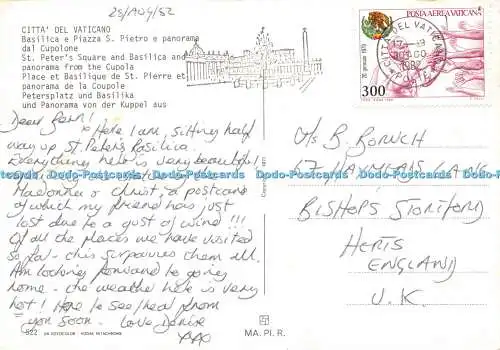 25/AUG/82
CITTA' DEL VATICANO
Basilica e Piazza S. Pietro e panorama
dal Cupolone
St. Peter's Square and Basilica and
panorama from the Cupola
Place et Basilique de St. Pierre et
panorama de la Coupole
Petersplatz und Basilika
und Panorama von der Kuppel aus
POSTA AEREA VATICANA
CITTA DEL VATICANO
POSTE
1982
26 gennaio 1979
300
Dear Bern!
Here I am, sitting half
way up St Peter's Basilica.
Everything here is very beautiful
Madonna & Christ, a postcard
of which my friend has just
lost due to a gust of wind !!!
Of all the places we have visited
so far - this surpasses them all.
Am looking forward to going
home - the weather here is very
hot! Hope to see/hear from
you soon. Love Denise
xxx
B. BORUCH
BISHOPS STORTFORD
HERTS
ENGLAND
U.K.
Dodo-Postcards Dodo-Postcards Dodo-Postcards Dodo-Postcards Dodo-Postcards
522
KODAK EKTACHROME
MA. PI. R.